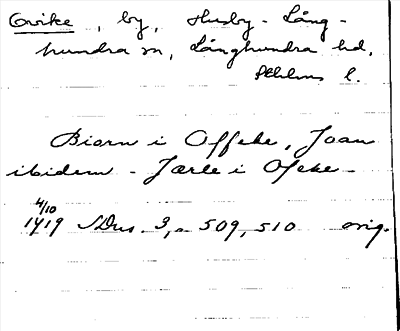 Ovike, by, Husby-Lång-
hundra sn, Långhundra hd,
Sthlms l.
Biorn i Offeke, Joan
ibidem - Jærle i Ofeke -
4/10
1419 SDns 3, s 509, 510 orig.